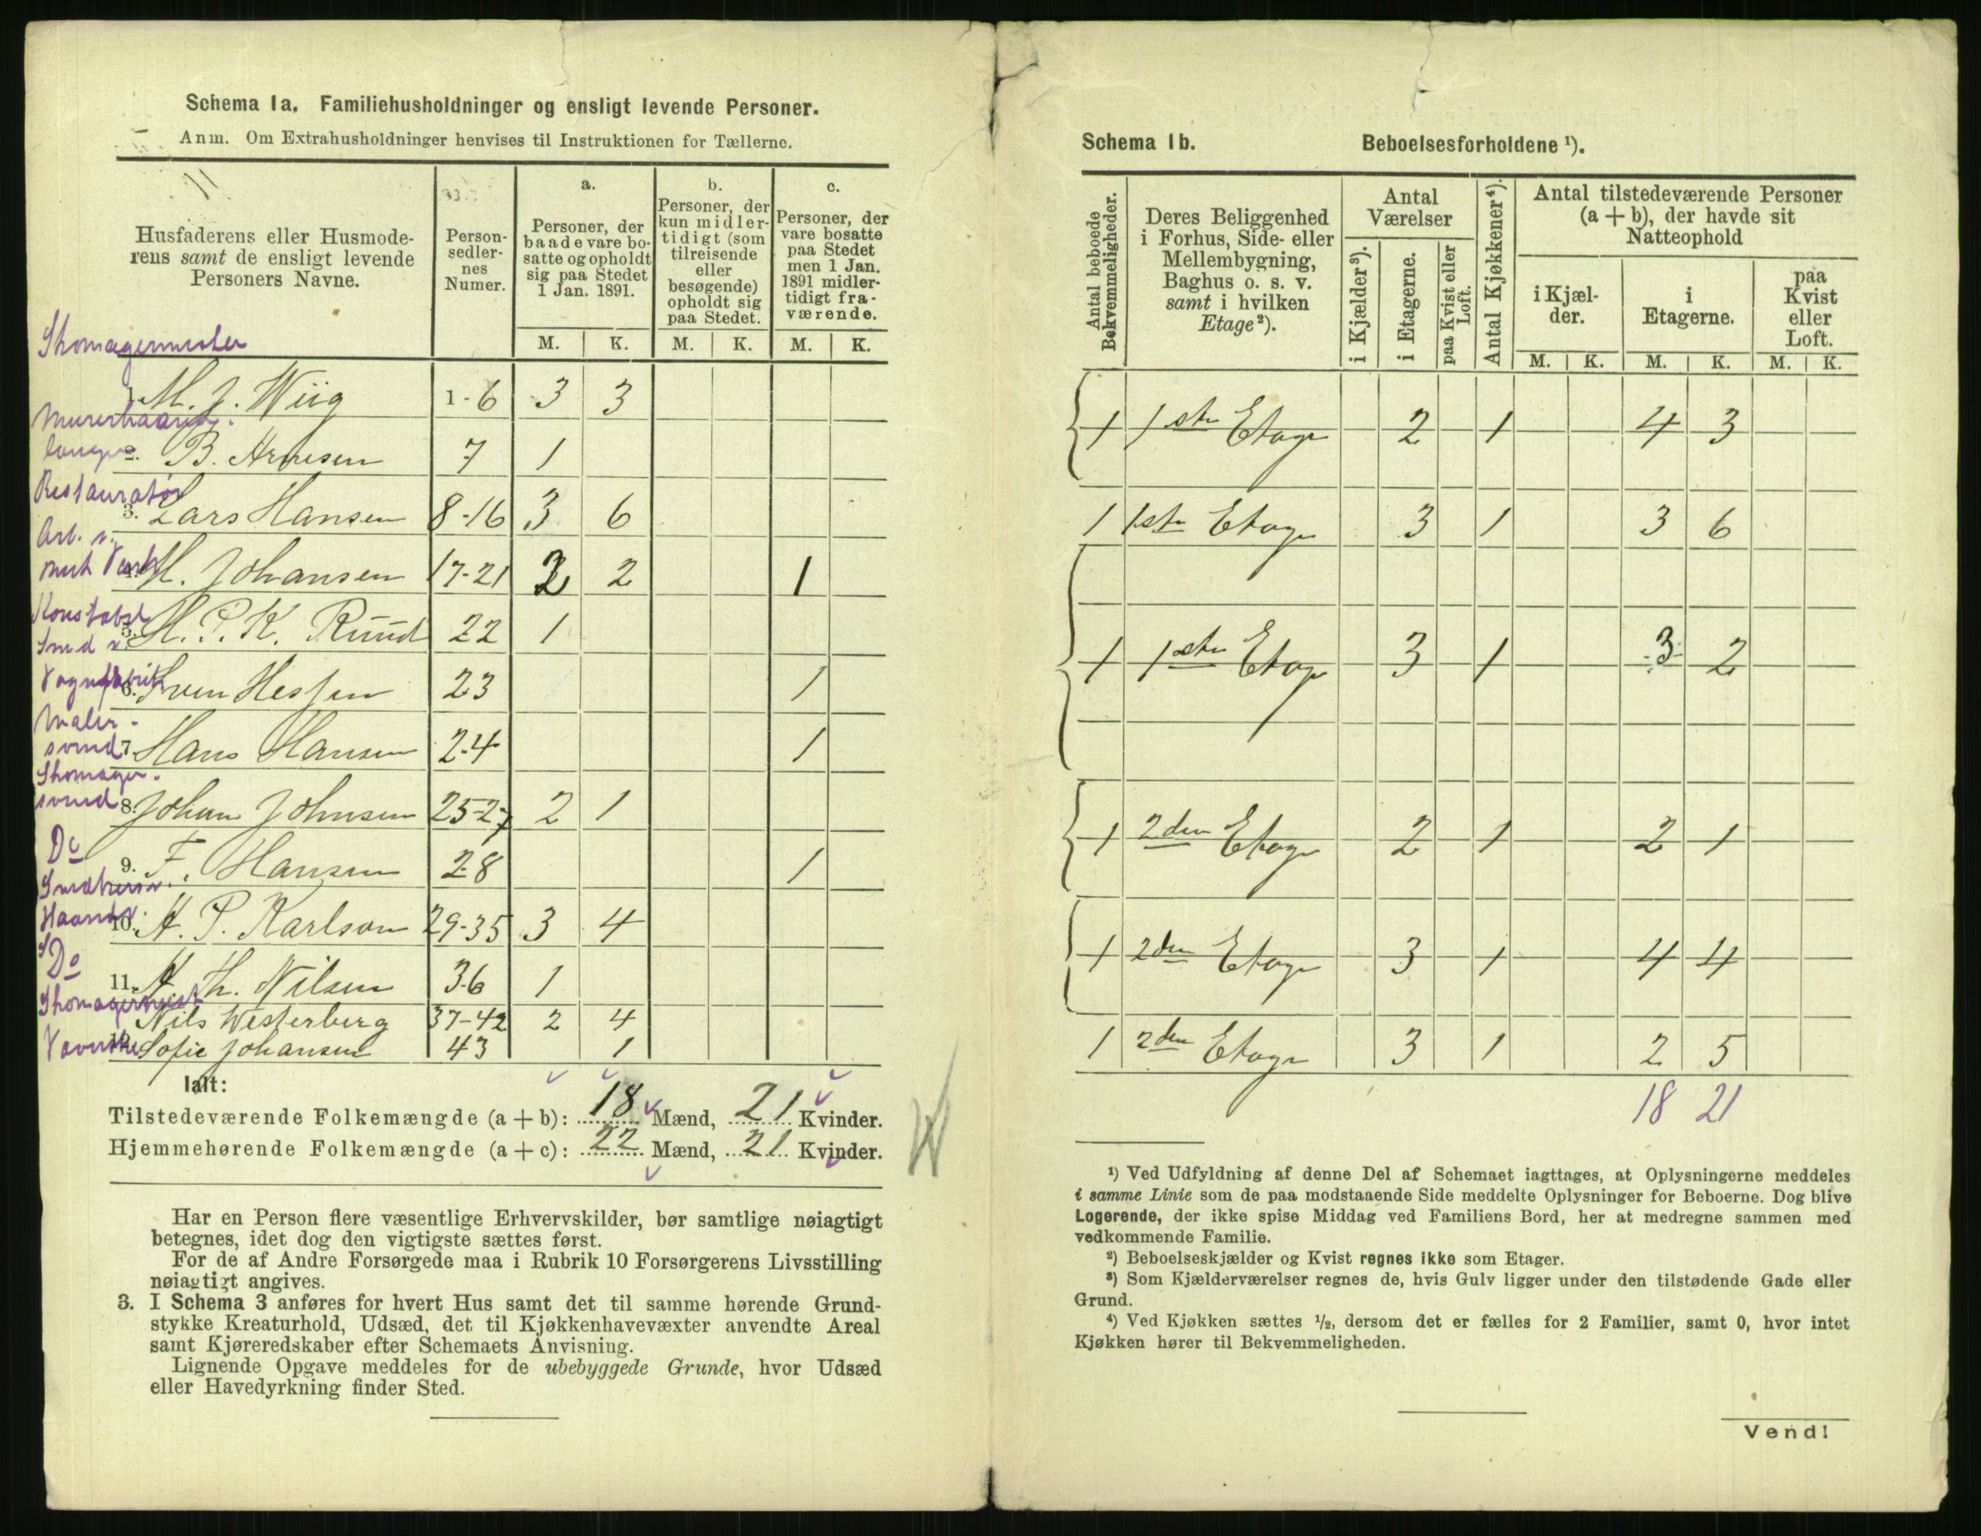 Schema 1a. Familiehusholdninger og ensligt levende Personer.
Anm. Om Extrahusholdninger henvises til Instruktionen for Tællerne.
Husfaderens eller Husmode-
rens samt de ensligt levende
Personers Navne.
Person-
sedler-
nes
Numer.
a.
Personer, der
baade vare bo-
satte og opholdt
sig paa Stedet
1 Jan. 1891.
b.
Personer, der
kun midler-
tidigt (som
tilreisende
eller
besøgende)
opholdt sig
paa Stedet.
c.
Personer, der
vare bosatte
paa Stedet
men 1 Jan.
1891 midler-
tidigt fra-
værende.
M. K. M. K. M. K.
Skomagermester
1. M. J. Wiig 1-6 3 3
Murerhaand-
langer 2. B. Arnesen 7 1
Restauratør
3. Lars Hansen 8-16 3 6
Arb. v.
mek Værk 4. M. Johansen 17-21 2 2 1
Konstabel
5. H. P. K. Ruud 22 1
Smed v.
Vognfabrik 6. Sven Hesjen 23 1
Maler-
svend 7. Hans Hansen 24 1
Skomager-
svend 8. Johan Johnsen 25-27 2 1
Do
9. F. Hansen 28 1
Snedkersv.
10. A. P. Karlson 29-35 3 4
Do
11. A Th. Nilsen 36 1
Skomagermest
Nils Westerberg 37-42 2 4
Væverske 12. Sofie Johansen 43 1
Ialt:
Tilstedeværende Folkemængde (a + b): 18 Mænd, 21 Kvinder.
Hjemmehørende Folkemængde (a + c): 22 Mænd, 21 Kvinder.
Har en Person flere væsentlige Erhvervskilder, bør samtlige nøiagtigt
betegnes, idet dog den vigtigste sættes først.
For de af Andre Forsørgede maa i Rubrik 10 Forsørgerens Livsstilling
nøiagtigt angives.
3. I Schema 3 anføres for hvert Hus samt det til samme hørende Grund-
stykke Kreaturhold, Udsæd, det til Kjøkkenhavevæxter anvendte Areal
samt Kjøreredskaber efter Schemaets Anvisning.
Lignende Opgave meddeles for de ubebyggede Grunde, hvor Udsæd
eller Havedyrkning finder Sted.
Schema 1b. Beboelsesforholdene ¹).
Antal beboede
Bekvemmeligheder.
Deres Beliggenhed
i Forhus, Side- eller
Mellembygning,
Baghus o. s. v.
samt i hvilken
Etage²).
Antal
Værelser
i Kjælder³).
i Etagerne.
paa Kvist eller
Loft.
Antal Kjøkkener⁴).
Antal tilstedeværende Personer
(a + b), der havde sit
Natteophold
i Kjæl-
der.
i
Etagerne.
paa
Kvist
eller
Loft.
M. K. M. K. M. K.
1 1ste Etage 2 1 4 3
1 1ste Etage 3 1 3 6
1 1ste Etage 3 1 3 2
1 2den Etage 2 1 2 1
1 2den Etage 3 1 4 4
1 2den Etage 3 1 2 5
18 21
¹) Ved Udfyldning af denne Del af Schemaet iagttages, at Oplysningerne meddeles
i samme Linie som de paa modstaaende Side meddelte Oplysninger for Beboerne. Dog blive
Logerende, der ikke spise Middag ved Familiens Bord, her at medregne sammen med
vedkommende Familie.
²) Beboelseskjælder og Kvist regnes ikke som Etager.
³) Som Kjælderværelser regnes de, hvis Gulv ligger under den tilstødende Gade eller
Grund.
⁴) Ved Kjøkken sættes ½, dersom det er fælles for 2 Familier, samt 0, hvor intet
Kjøkken hører til Bekvemmeligheden.
Vend!